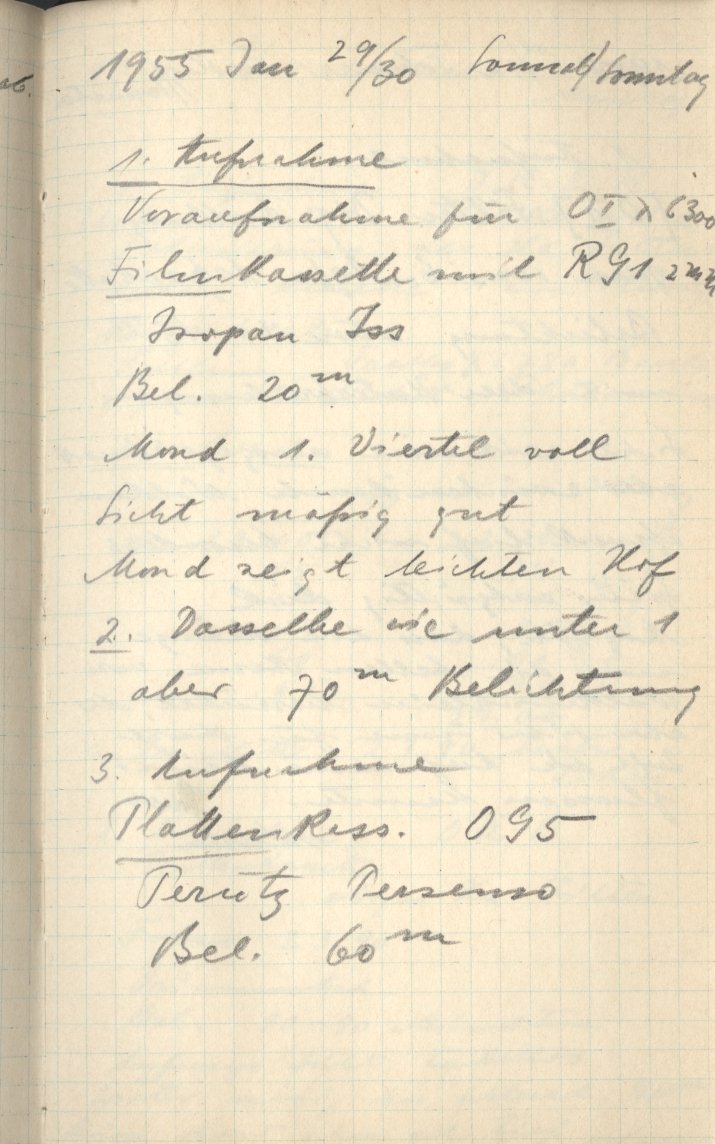 1955 Jan 29/30 Sonnab/Sonntag
1. Aufnahme
Voraufnahme für OI λ 6300
Filmkassette mit RG1 2mm
Isopan Iss
Bel. 20m
Mond 1. Viertel voll
Sicht mäßig gut
Mond zeigt leichten Hof
2. Dasselbe wie unter 1
aber 70m Belichtung
3. Aufnahme
Plattenkass. OG5
Perutz Persenso
Bel. 60m